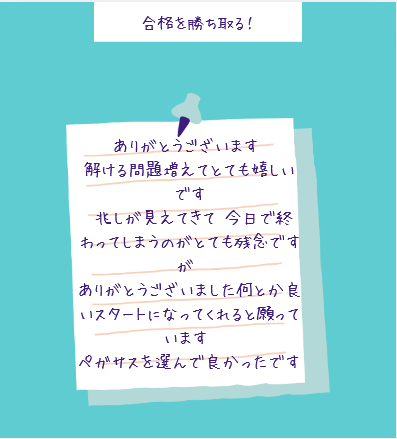 合格を勝ち取る！
ありがとうございます
解ける問題増えてとても嬉しい
です
兆しが見えてきて 今日で終
わってしまうのがとても残念です
が
ありがとうございました何とか良
いスタートになってくれると願って
います
ペガサスを選んで良かったです